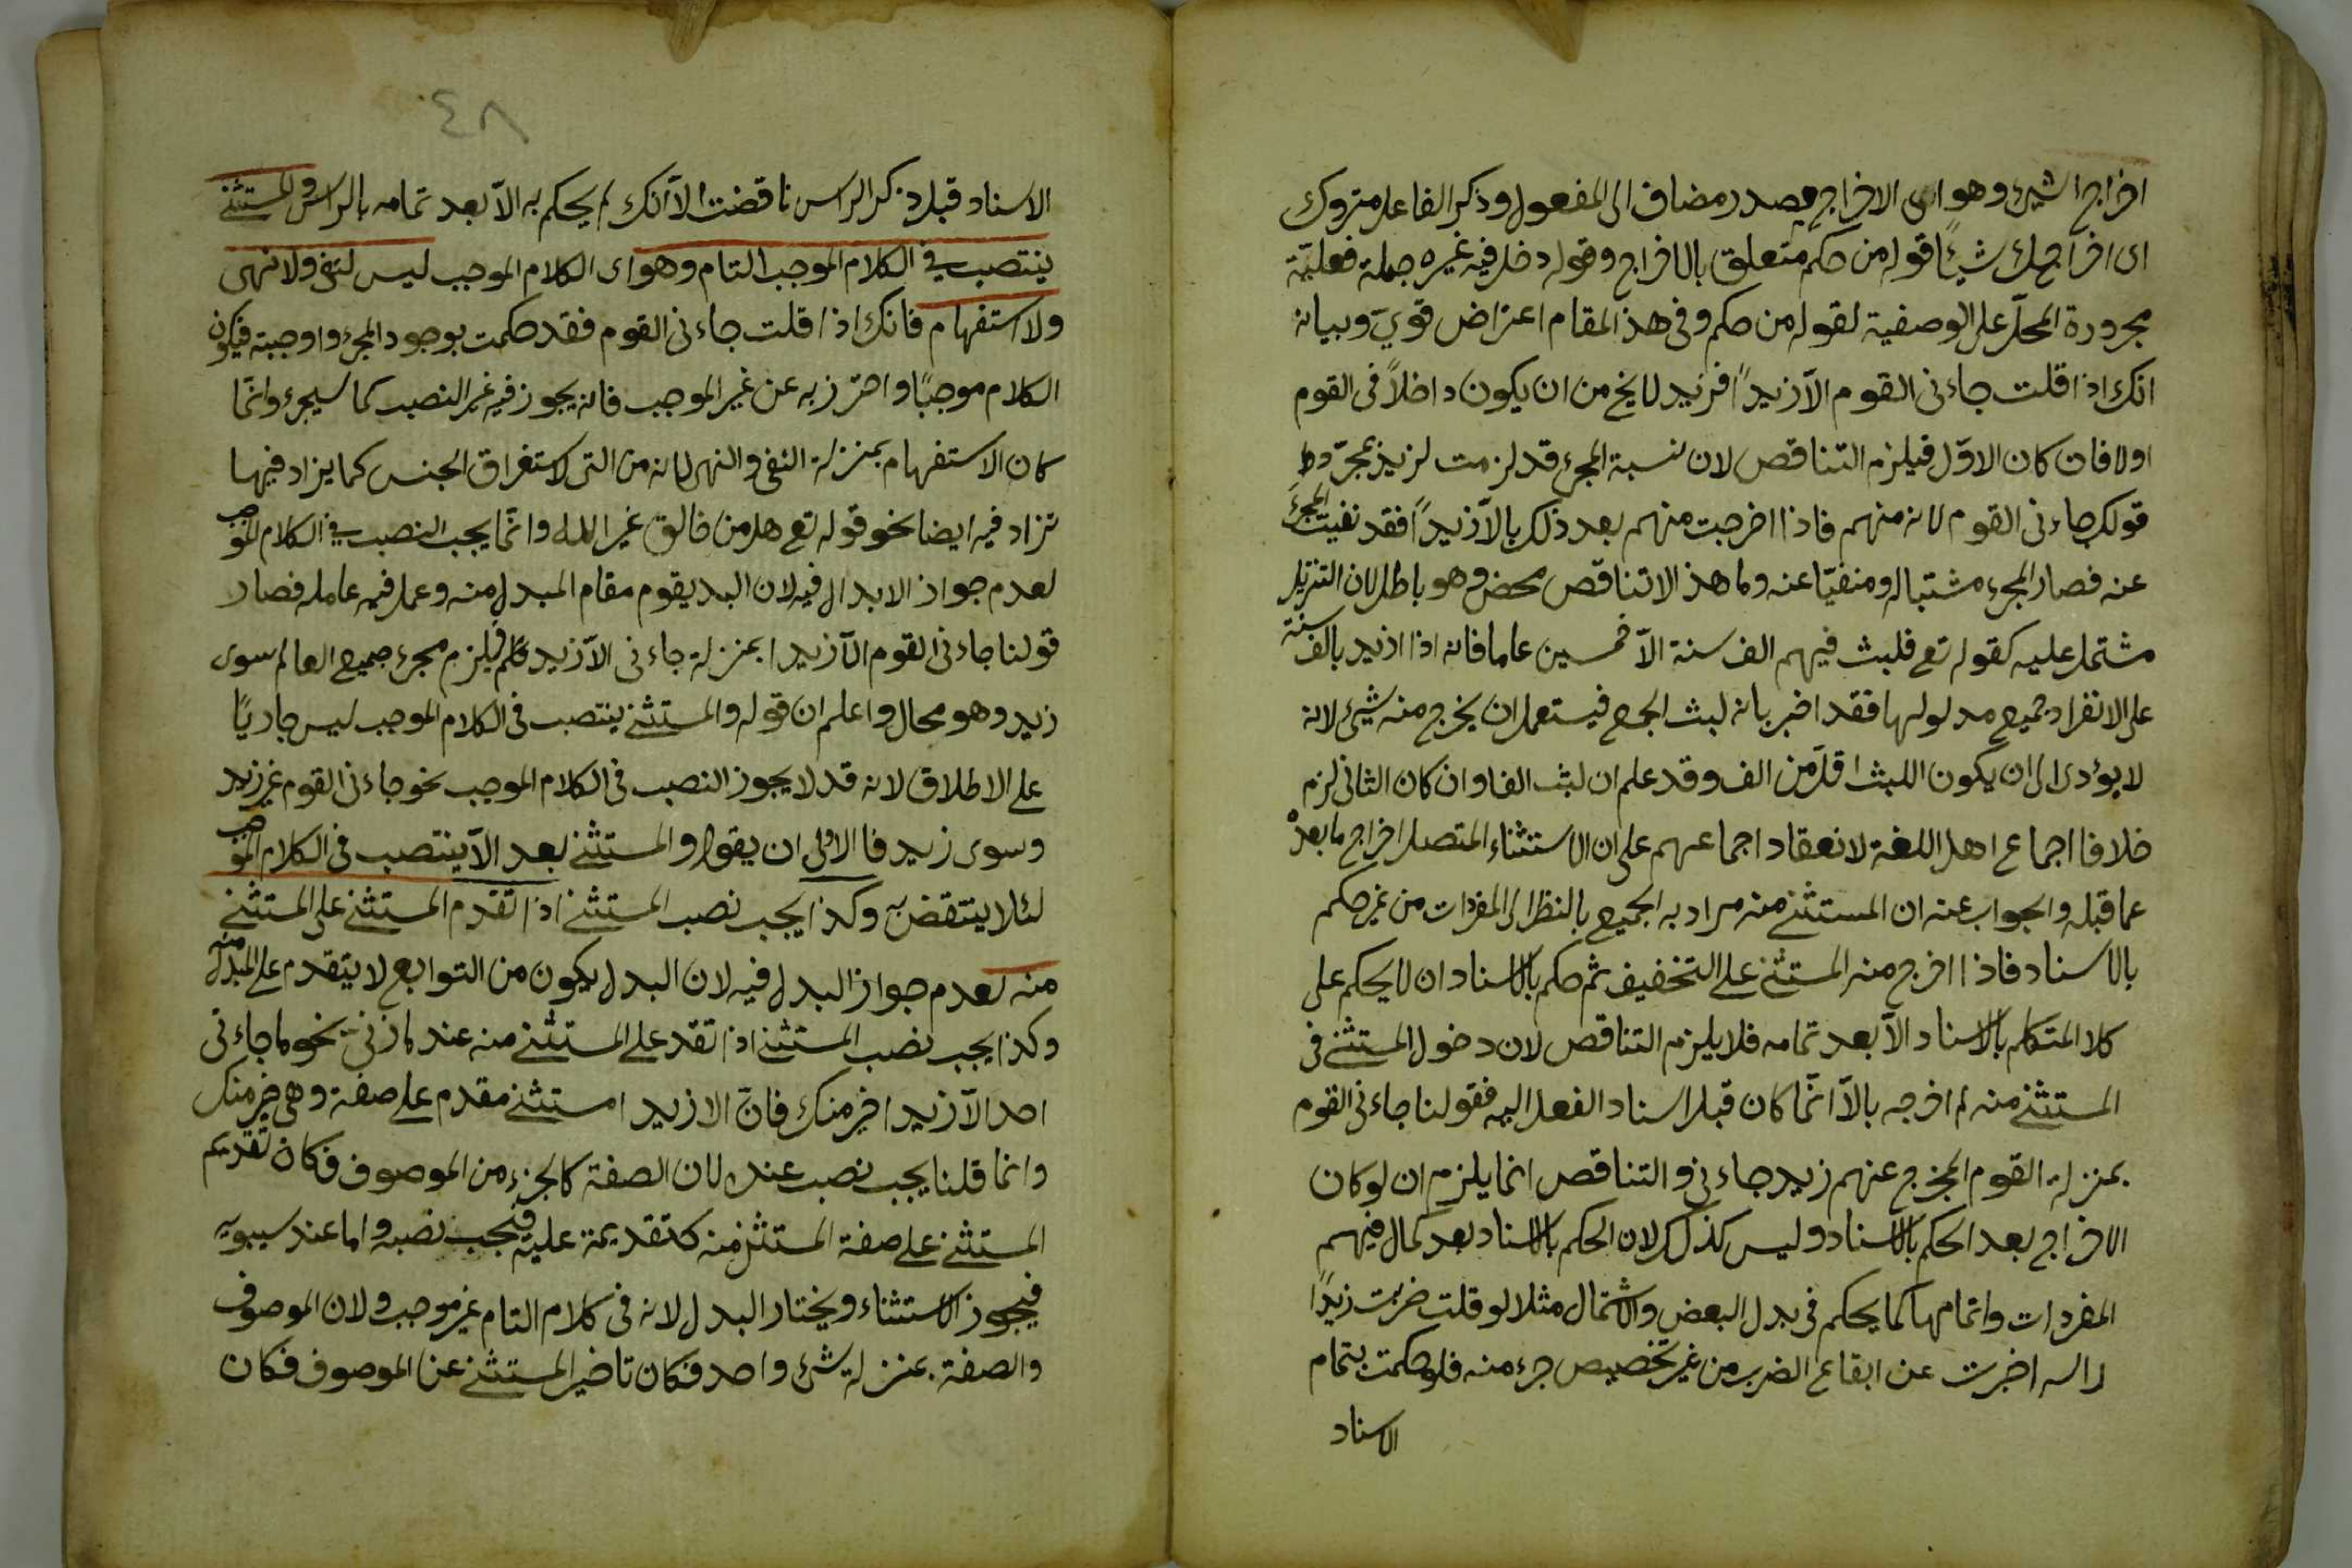 اخراج الشيء وهو اى الاخراج مصدر مضاف الى المفعول وذكر الفاعل متروك
اى اخراجك شيئًا قوله من حكم متعلق بالاخراج وقوله دخل فيه غيره جملة فعليّة
مجرورة المحلّ على الوصفية لقوله من حكم وفى هذ المقام اعتراض قويّ وبيانه
انك اذا قلت جاءنى القوم الّا زيدًا فزيد لايخ من ان يكون داخلاً فى القوم
اولا فان كان الاوّل فيلزم التناقض لان نسبة المجئ قد لزمت لزيد بمجرّد
قولك جاءنى القوم لانه منهم فاذا اخرجت منهم بعد ذلك بالّا زيدًا فقد نفيت المجئ
عنه فصار المجئ مثبتاله ومنفيّا عنه وما هذ الا تناقض محض وهو باطل لان التنزيل
مشتمل عليه كقوله تع فلبث فيهم الف سنة الّا خمسين عاما فانه اذا اريد بالف سنة
على الانفراد جميع مدلولها فقد اخبر بانه لبث الجمع فيستعمل ان يخرج منه شيئ لانه
لا يؤدى الى ان يكون اللبث اقلّ من الف وقد علم ان لبث الفا وان كان الثانى لزم
خلافا اجماع اهل اللغة لانعقاد اجماعهم على ان الاستثناء المتصل اخراج ما بعده
عما قبله والجواب عنه ان المستثنى منه مراد به الجميع بالنظر الى المفردات من غير حكم
بالاسناد فاذا اخرج منه المستثنى على التخفيف ثم حكم بالاسناد ان لايحكم على
كلا المتكلم بالاسناد الّا بعد تمامه فلا يلزم التناقض لان دخول المستثنى فى
المستثنى منه ثم اخرجه بالّا انّما كان قبل اسناد الفعل اليه فقولنا جاءنى القوم
بمنزلة القوم المخرج عنهم زيد جاءنى والتناقض انما يلزم ان لو كان
الاخراج بعد الحكم بالاسناد وليس كذلك لان الحكم بالاسناد بعد كمال فيهم
المفردات واتمامها كما يحكم فى بدل البعض والاشتمال مثلا لو قلت ضربت زيدًا
راسه اخبرت عن ايقاع الضرب من غير تخصيص جزء منه فلو حكمت بتمام
الاسناد
٤٨
الاسناد قبل ذكر الراس ناقضت الّا انك لم يحكم به الّا بعد تمامه بالراس والمستثنى
ينتصب فى الكلام الموجب التام وهو اى الكلام الموجب ليس لنفى ولا نهى
ولا استفهام فانك اذا قلت جاءنى القوم فقد حكمت بوجود المجئ واوجبته فيكون
الكلام موجبًا واحترز به عن غير الموجب فانه يجوز فيه غير النصب كما سيجئ وانّما
كان الاستفهام بمنزلة النفى والنهى لانه من التى لاستغراق الجنس كما يزاد فيها
تزاد فيه ايضا نحو قوله تع هل من خالق غير الله وانّما يجب النصب فى الكلام الموجب
لعدم جواز الابدال فيه لان البد يقوم مقام المبدل منه وعمل فيه عامله فصار
قولنا جاءنى القوم الّا زيدا بمنزلة جاءنى الّا زيد فيلزم مجئ جميع العالم سوى
زيد وهو محال واعلم ان قوله والمستثنى ينتصب فى الكلام الموجب ليس جاريًا
على الاطلاق لانه قد لا يجوز النصب فى الكلام الموجب نحو جاءنى القوم غير زيد
وسوى زيد فالاولى ان يقول والمستثنى بعد الّا ينتصب فى الكلام الموجب
لئلا ينتقض به وكذا يجب نصب المستثنى اذا تقدم المستثنى على المستثنى
منه لعدم جواز البدل فيه لان البدل يكون من التوابع لا يتقدم على المبدل منه
وكذا يجب نصب المستثنى اذا تقدّ على المستثنى منه عند مازنى نحو ما جاءنى
احد الّا زيدا خير منك فانّ الا زيدا مستثنى مقدم على صفة وهى خير منك
وانما قلنا يجب نصب عنده لان الصفة كالجزء من الموصوف فكان تقديم
المستثنى على صفة المستثنى منه كتقديمة عليه فيجب نصبه واما عند سيبويه
فيجوز الاستثناء ويختار البدل لانه فى كلام التام غير موجب ولان الموصوف
والصفة بمنزلة شئ واحد فكان تاخير المستثنى عن الموصوف فكان